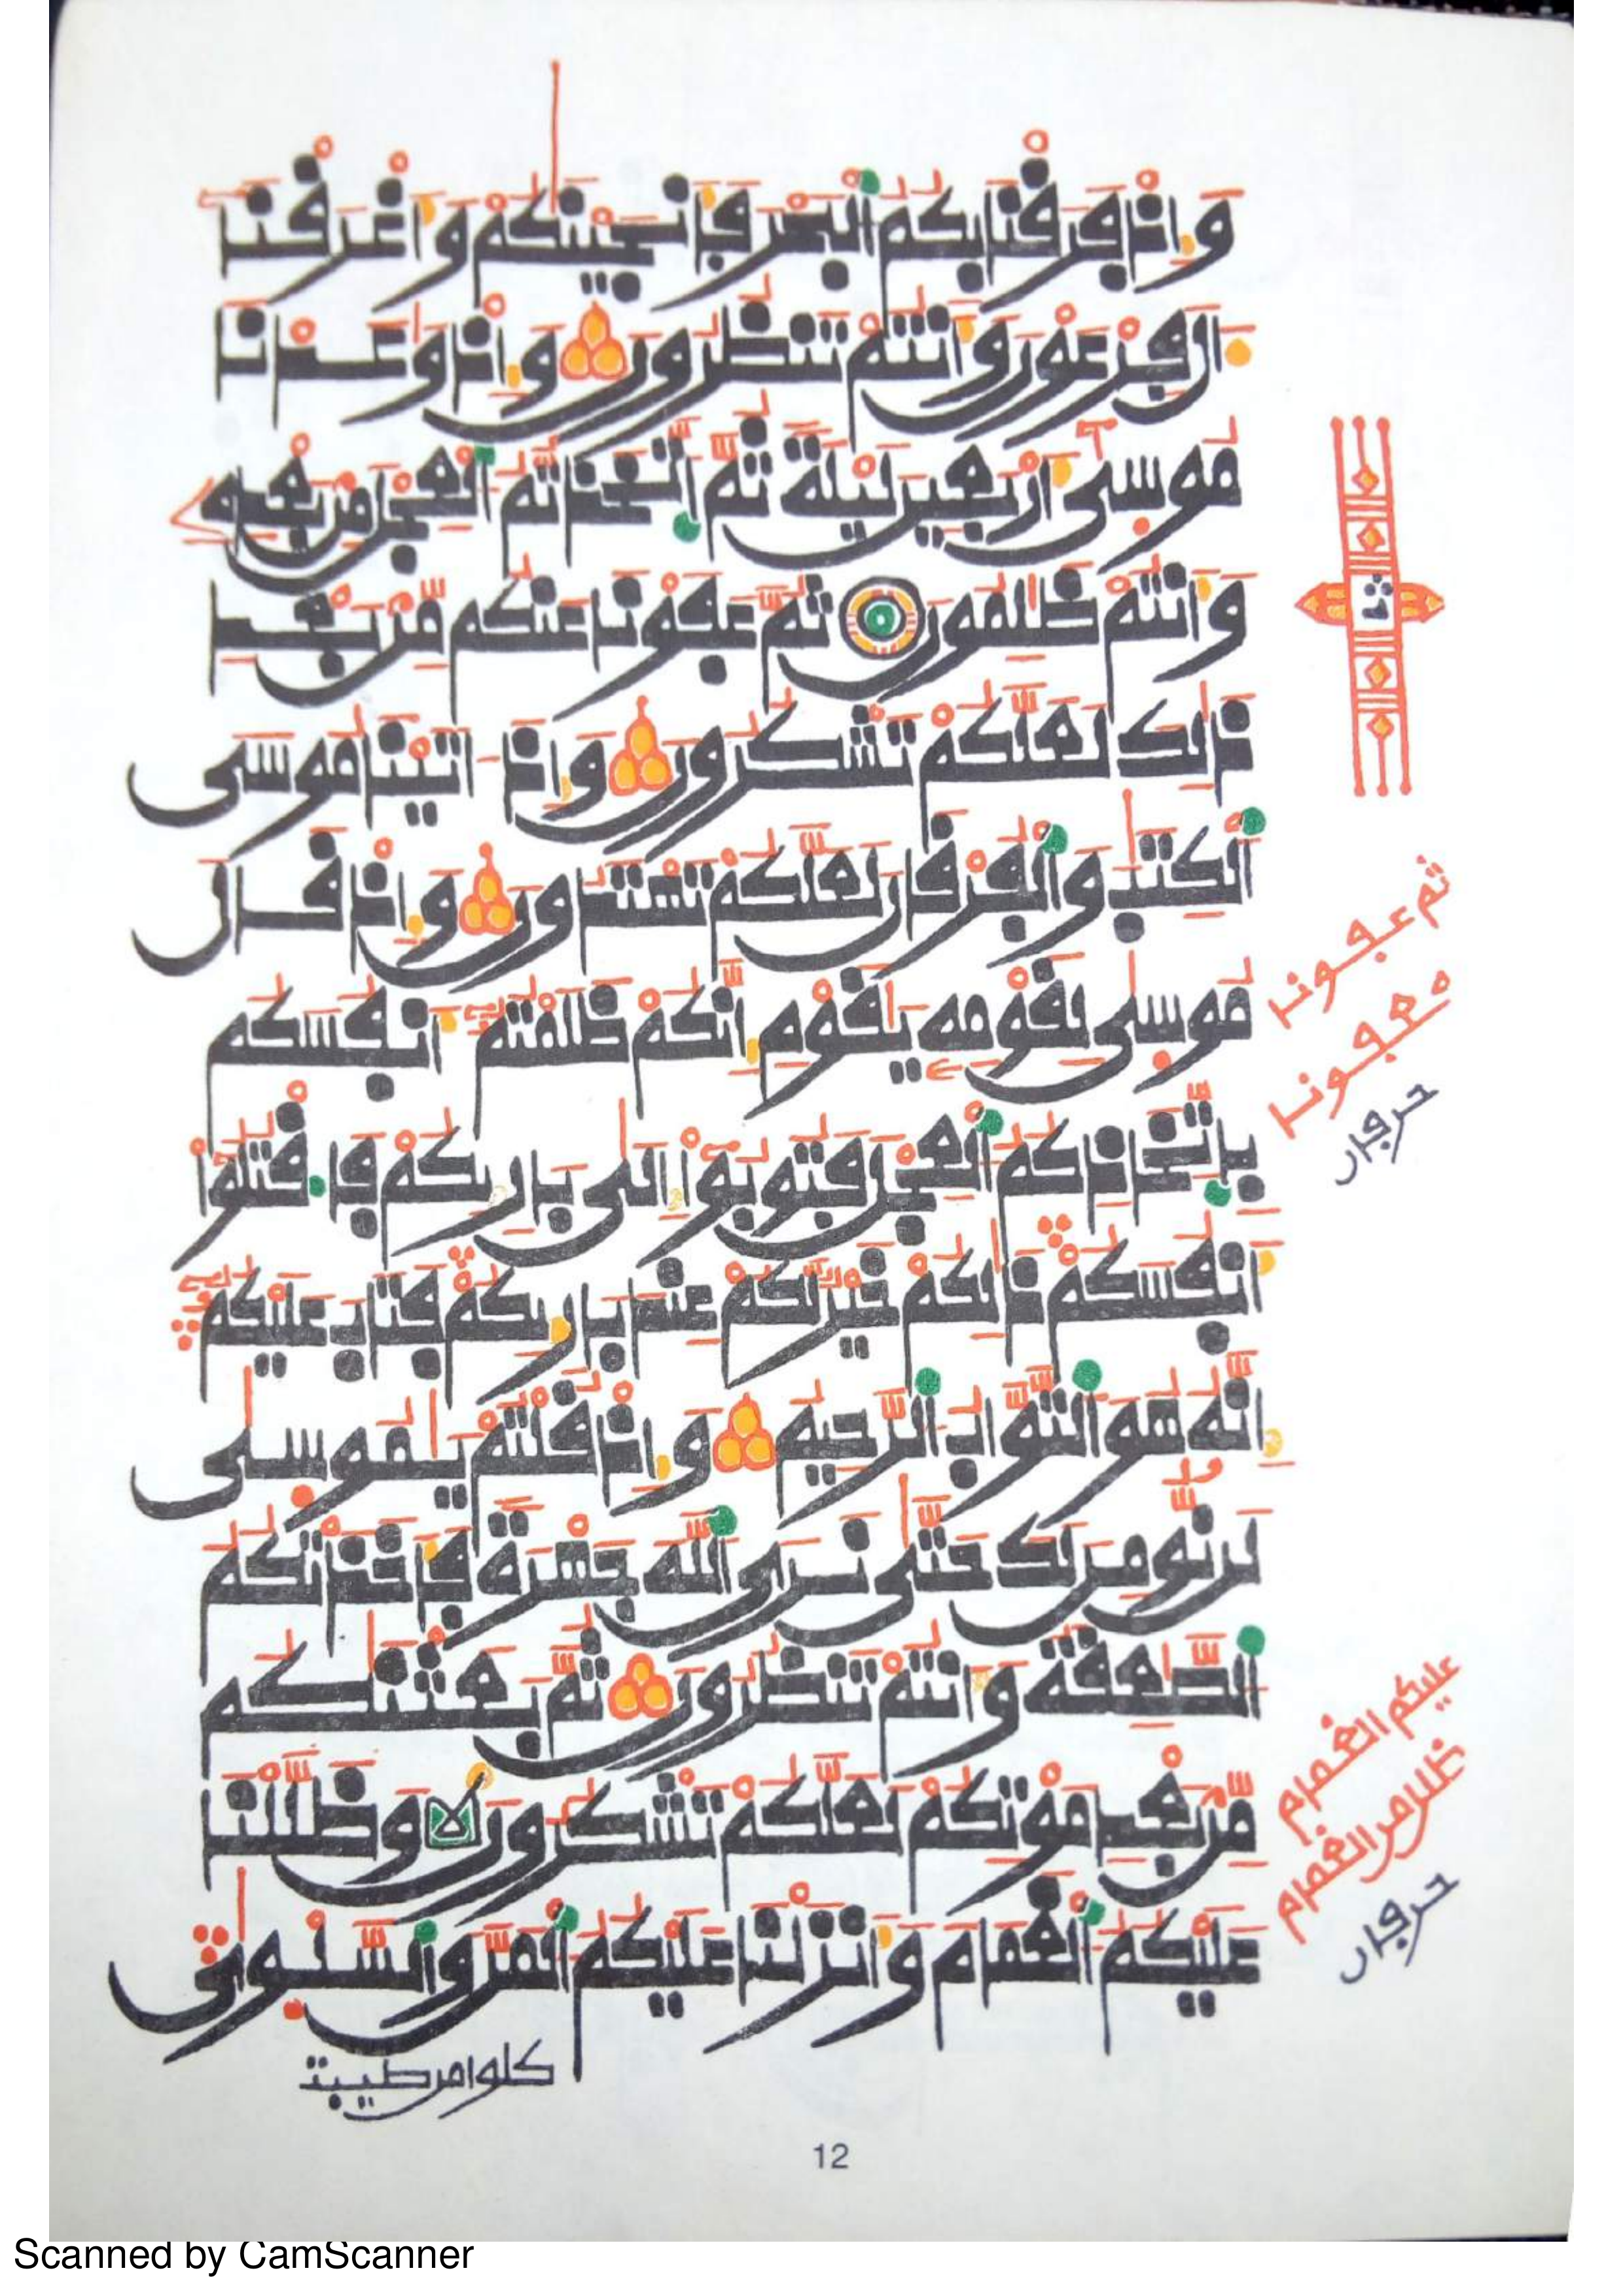 وَإِذْ فَرَقْنَا بِكُمُ الْبَحْرَ فَأَنجَيْنَٰكُمْ وَأَغْرَقْنَا
ءَالَ فِرْعَوْنَ وَأَنتُمْ تَنظُرُونَ وَإِذْ وَٰعَدْنَا
مُوسَىٰ أَرْبَعِينَ لَيْلَةً ثُمَّ اتَّخَذتُّمُ الْعِجْلَ مِنۢ بَعْدِهِۦ
وَأَنتُمْ ظَٰلِمُونَ ثُمَّ عَفَوْنَا عَنكُم مِّنۢ بَعْدِ
ذَٰلِكَ لَعَلَّكُمْ تَشْكُرُونَ وَإِذْ ءَاتَيْنَا مُوسَى
الْكِتَٰبَ وَالْفُرْقَانَ لَعَلَّكُمْ تَهْتَدُونَ وَإِذْ قَالَ
مُوسَىٰ لِقَوْمِهِۦ يَٰقَوْمِ إِنَّكُمْ ظَلَمْتُمْ أَنفُسَكُم
بِاتِّخَاذِكُمُ الْعِجْلَ فَتُوبُوٓا۟ إِلَىٰ بَارِئِكُمْ فَاقْتُلُوٓا۟
أَنفُسَكُمْ ذَٰلِكُمْ خَيْرٌ لَّكُمْ عِندَ بَارِئِكُمْ فَتَابَ عَلَيْكُمْ
إِنَّهُۥ هُوَ التَّوَّابُ الرَّحِيمُ وَإِذْ قُلْتُمْ يَٰمُوسَىٰ
لَن نُّومِنَ لَكَ حَتَّىٰ نَرَى اللَّهَ جَهْرَةً فَأَخَذَتْكُمُ
الصَّٰعِقَةُ وَأَنتُمْ تَنظُرُونَ ثُمَّ بَعَثْنَٰكُم
مِّنۢ بَعْدِ مَوْتِكُمْ لَعَلَّكُمْ تَشْكُرُونَ وَظَلَّلْنَا
عَلَيْكُمُ الْغَمَامَ وَأَنزَلْنَا عَلَيْكُمُ الْمَنَّ وَالسَّلْوَىٰ
كلوا من طيبت
ثمن
ثم عفونا
معفونا
حرفان
عليكم الغمام
ظلل من الغمام
حرفان
12
Scanned by CamScanner